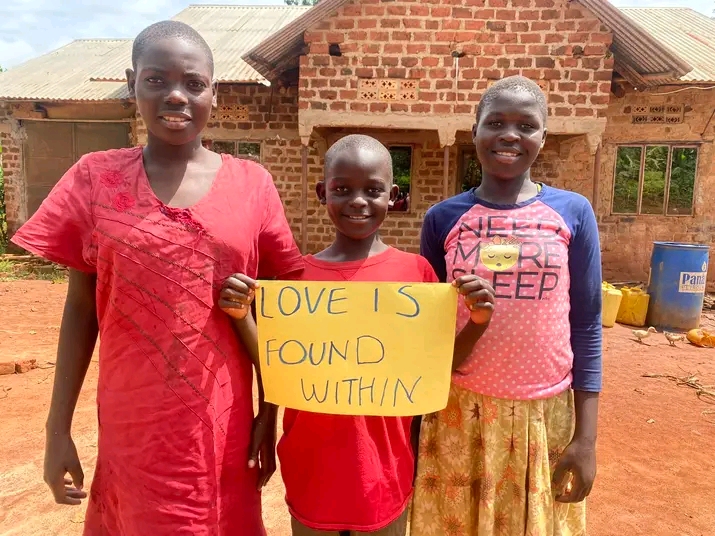 LOVE IS
FOUND
WITHIN
NEED
MORE
SLEEP